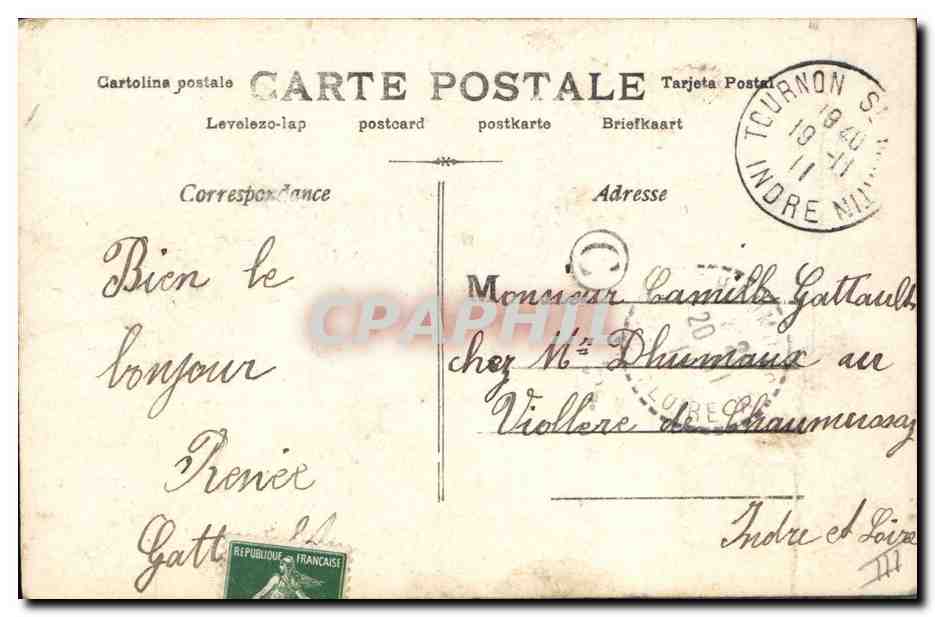 Cartolina postale CARTE POSTALE Tarjeta Postal
Levelezo-lap postcard postkarte Briefkaart
Correspondance
Adresse
TOURNON St MARTIN
INDRE
1840
19 -11
11
Bien le
bonjour
Renée
Gatt
REPUBLIQUE FRANÇAISE
C
Monsieur Camille Gattault
chez Mr Dhumaux au
Viollere de Chaumussay
Indre et Loire
20
LOIRE
CPAPHIL